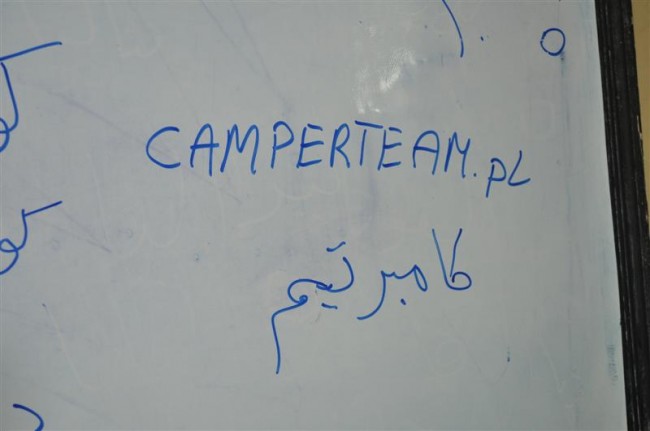 CAMPERTEAM.PL
كامبر تيم